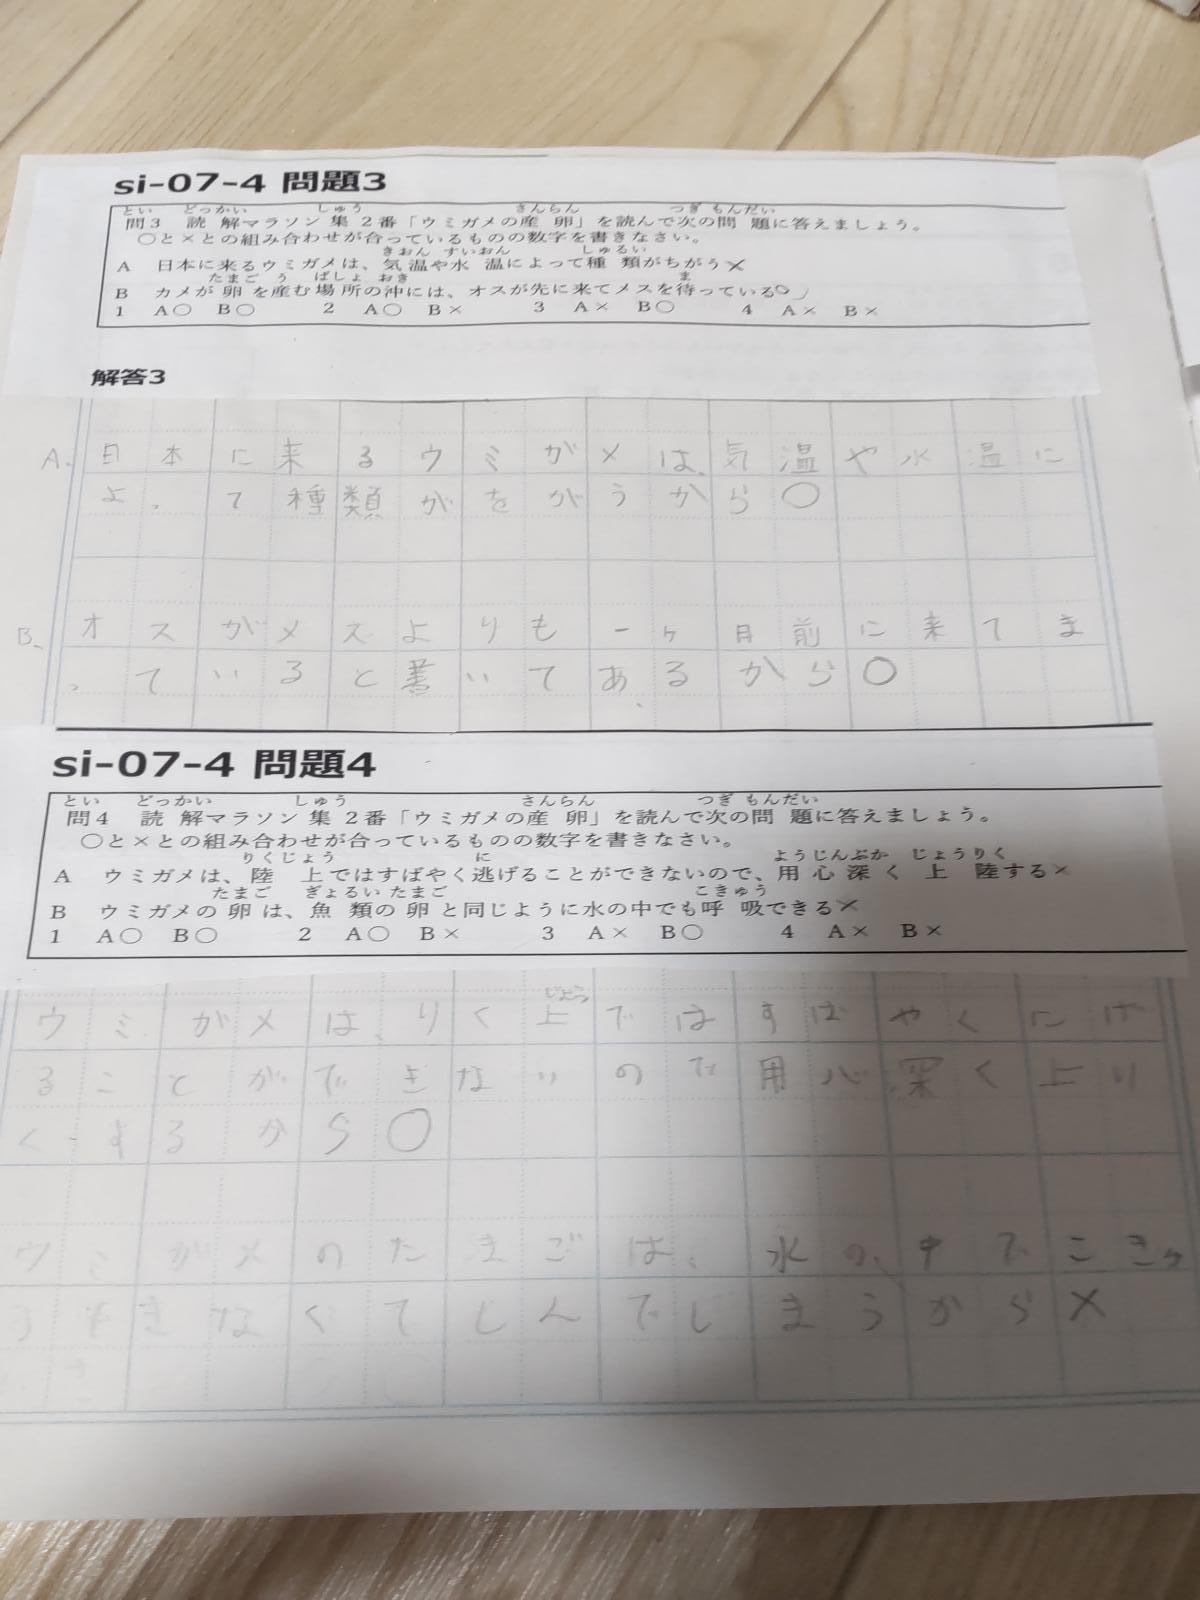 si-07-4 問題3
とい どっかい しゅう さんらん つぎ もんだい
問3 読解マラソン集2番「ウミガメの産卵」を読んで次の問題に答えましょう。
○と×との組み合わせが合っているものの数字を書きなさい。
きおん すいおん しゅるい
A 日本に来るウミガメは、気温や水温によって種類がちがう×
たまご う ばしょ おき ま
B カメが卵を産む場所の沖には、オスが先に来てメスを待っている○
1 A○ B○ 2 A○ B× 3 A× B○ 4 A× B×
解答3
A、日本に来るウミガメは、気温や水温に
よって種類がをがうから○
B、オスがメスよりも一ヶ月前に来てま
っていると書いてあるから○
si-07-4 問題4
とい どっかい しゅう さんらん つぎ もんだい
問4 読解マラソン集2番「ウミガメの産卵」を読んで次の問題に答えましょう。
○と×との組み合わせが合っているものの数字を書きなさい。
りくじょう に ようじんぶか じょうりく
A ウミガメは、陸上ではすばやく逃げることができないので、用心深く上陸する×
たまご ぎょるい たまご こきゅう
B ウミガメの卵は、魚類の卵と同じように水の中でも呼吸できる×
1 A○ B○ 2 A○ B× 3 A× B○ 4 A× B×
じょう
ウミガメは、りく上ではすばやくにげ
ることができないので用心深く上り
くするから○
ウミガメのたまごは、水の中でこきゅ
うできなくてしんでしまうから×